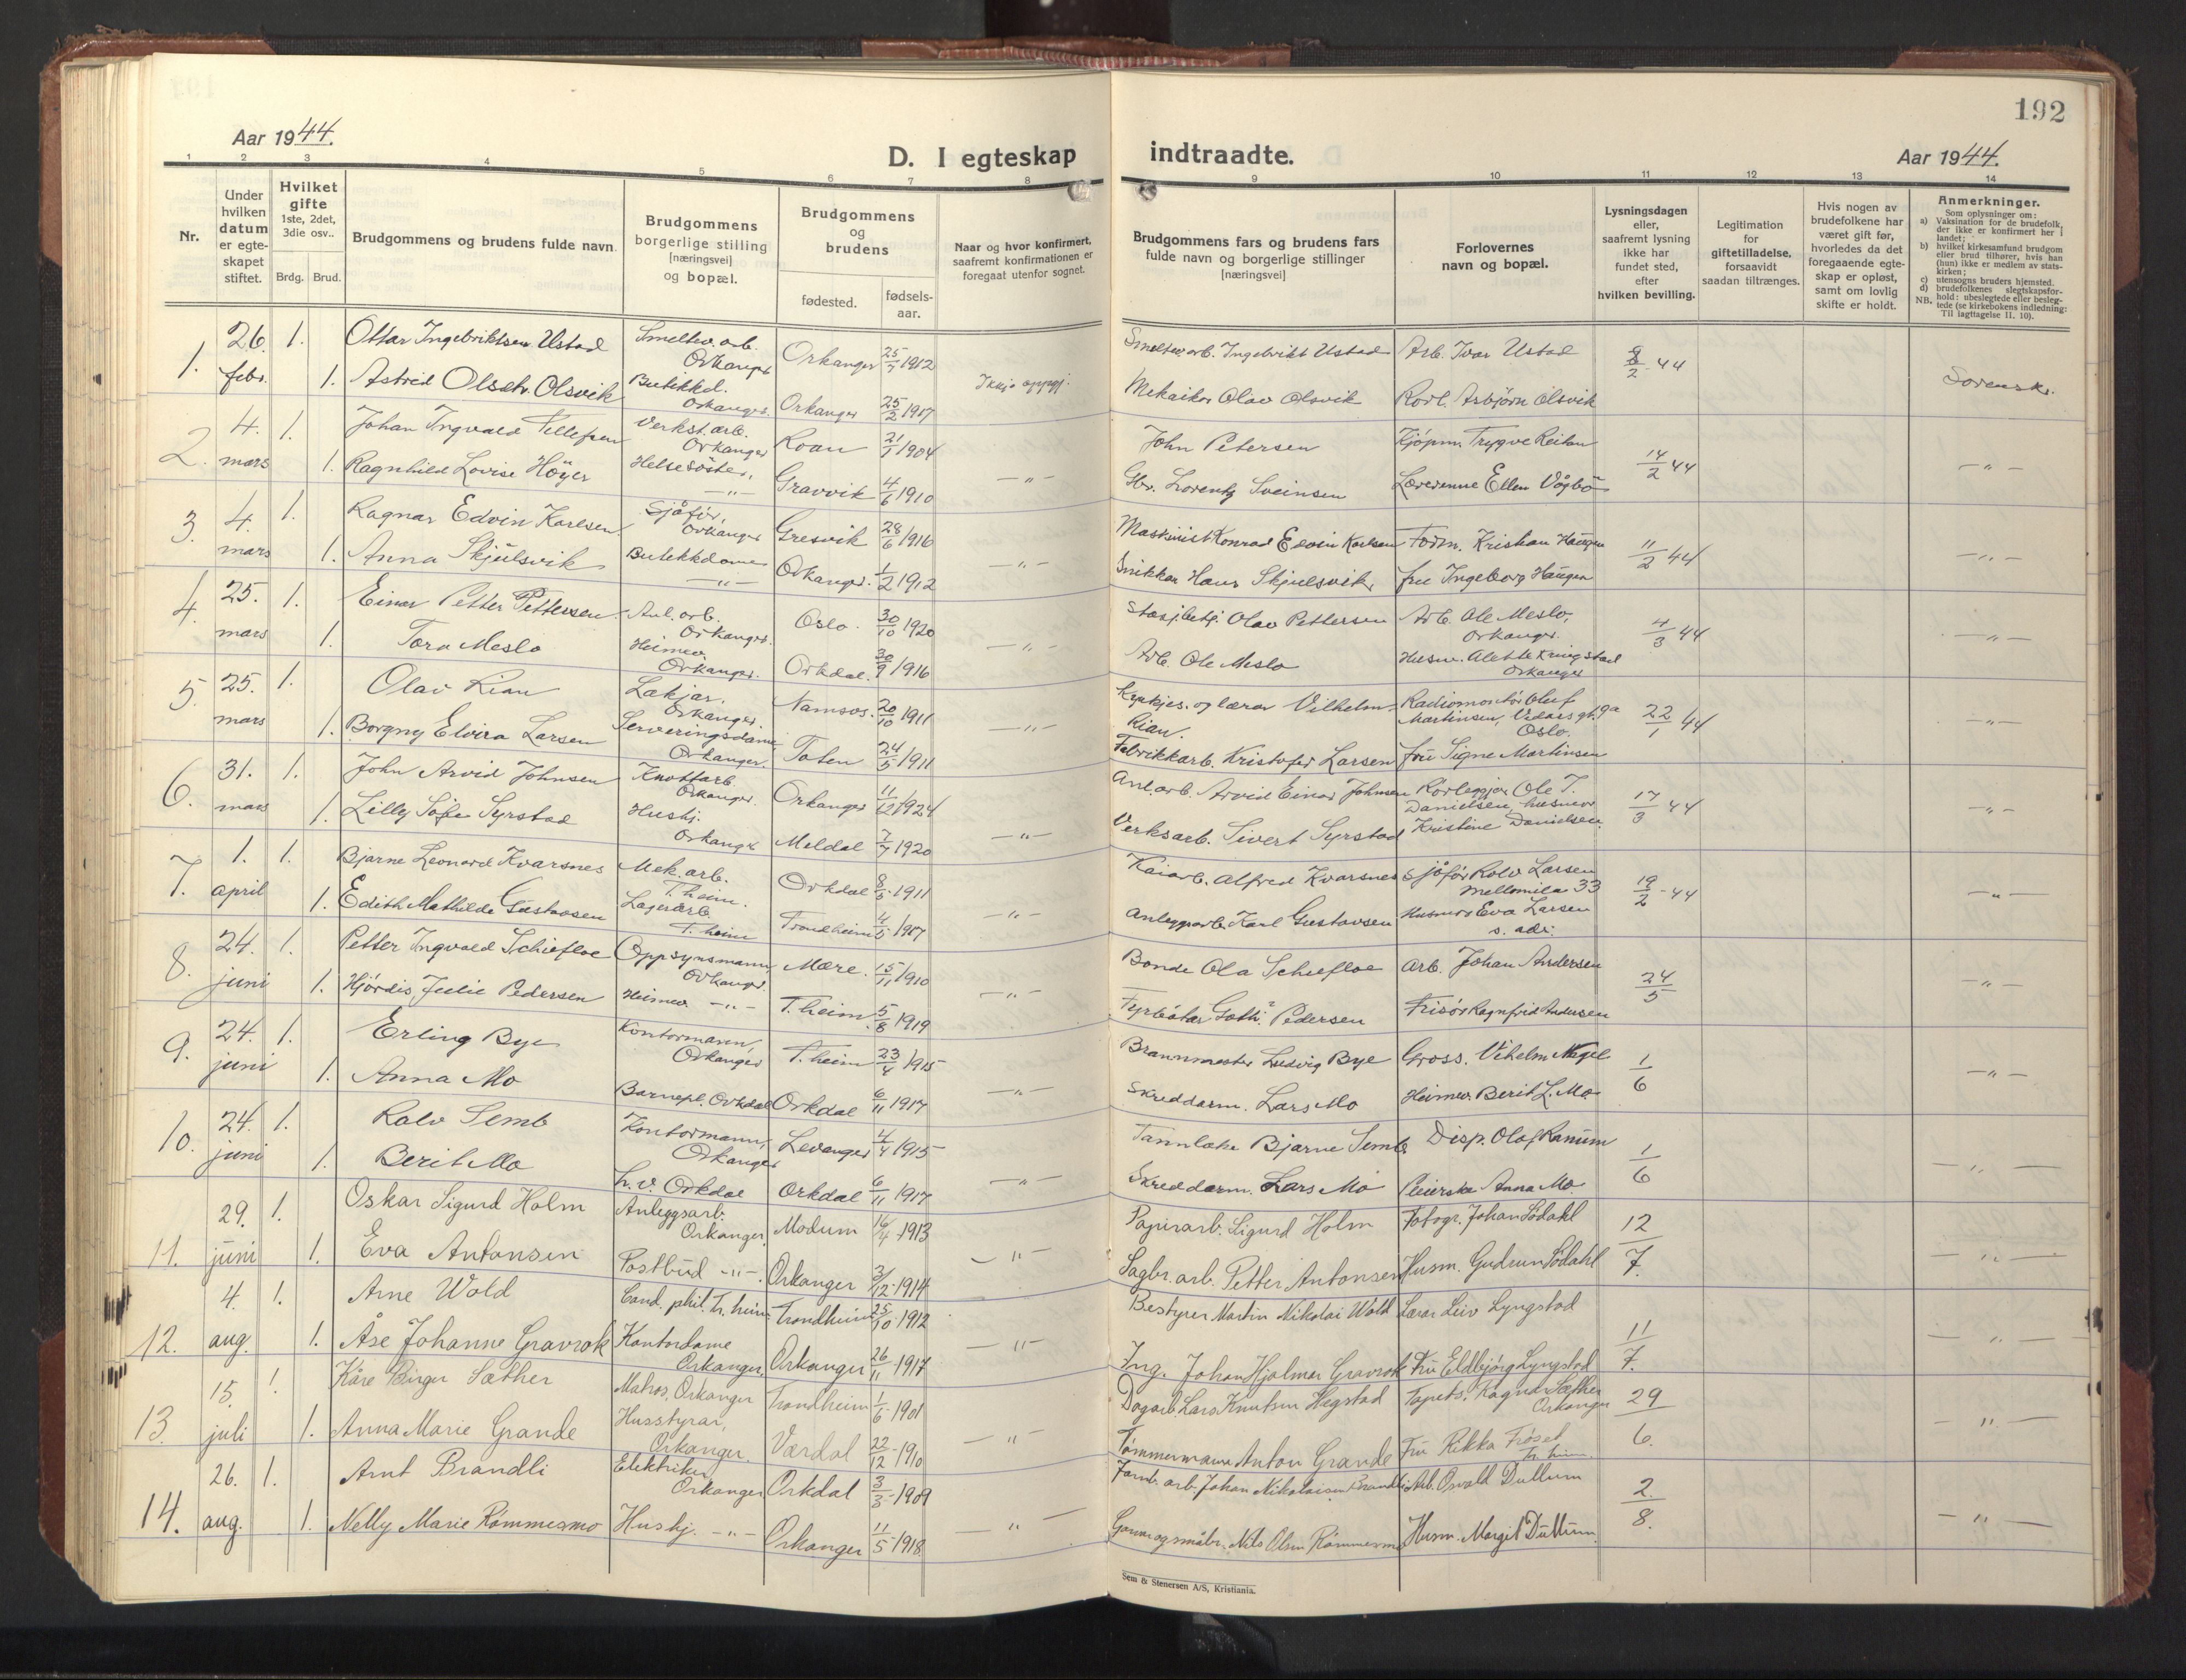 192
Aar 1944.
D. I egteskap indtraadte.
Aar 1944.
1 2 3 4 5 6 7 8 9 10 11 12 13 14
Nr.
Under hvilken datum er egteskapet stiftet.
Hvilket gifte 1ste, 2det, 3die osv..
Brdg. Brud.
Brudgommens og brudens fulde navn.
Brudgommens borgerlige stilling [næringsvei] og bopæl.
Brudgommens og brudens
fødested.
fødsels-aar.
Naar og hvor konfirmert, saafremt konfirmationen er foregaat utenfor sognet.
Brudgommens fars og brudens fars fulde navn og borgerlige stillinger [næringsvei]
Forlovernes navn og bopæl.
Lysningsdagen eller, saafremt lysning ikke har fundet sted, efter hvilken bevilling.
Legitimation for giftetilladelse, forsaavidt saadan tiltrænges.
Hvis nogen av brudefolkene har været gift før, hvorledes da det foregaaende egteskap er opløst, samt om lovlig skifte er holdt.
Anmerkninger.
Som oplysninger om:
a) Vaksination for de brudefolk, der ikke er konfirmert her i landet;
b) hvilket kirkesamfund brudgom eller brud tilhører, hvis han (hun) ikke er medlem av statskirken;
c) utensogns bruders hjemsted.
d) brudefolkenes slegtskapsforhold: ubeslegtede eller beslegtede (se kirkebokens indledning: Til iagttagelse II. 10).
NB.
1. 26. febr. 1. Ottar Ingebriktsen Ustad Smeltev. arb. Orkanger Orkanger 25/7 1912 Smeltev. arb. Ingebrikt Ustad Arb. Ivar Ustad 8/2 44
1. Astrid Olsdtr. Olsvik Butikkd. Orkanger Orkanger 25/2 1917 Ikkje oppgj. Mekaiker Olav Olsvik Asbjørn Olsvik Sorenskr.
2. 4. mars 1. Johan Ingvald Tellefsen Verkst. arb. Orkanger Roan 21/1 1904 John Petersen Kjøpm. Trygve Reitan 14/2 44
1. Ragnhild Lovise Höyer Helsesöster, —„— Gravvik 4/6 1910 —„— Gbr. Lorentz Sveinsen Lærerinne Ellen Vågbö —„—
3. 4. mars 1. Ragnar Edvin Karlsen Sjåför, Orkanger Gresvik 28/6 1916 Maskinist Konrad Edvin Karlsen Form. Kristian Haugen 11/2 44
1. Anna Skjulsvik Butikkdame —„— Orkanger. 1/2 1912 —„— Snikkar Hans Skjulsvik, fru Ingeborg Haugen —„—
4. 25. mars 1. Einar Petter Pettersen Anl. arb. Orkanger. Oslo. 30/10 1920 Stasj.betj. Olav Pettersen Arb. Ole Meslo, Orkanger. 4/3 44
1. Tora Meslo Heimev. Orkanger. Orkdal. 30/9 1916 —„— Arb. Ole Meslo Husm. Alette Kringstad Orkanger —„—
5. 25. mars 1. Olav Rian Lakjar, Orkanger. Namsos. 20/10 1911 Kyrkjes. og lærar Vilhelm Rian. Radiomontör Oluf Martinsen, Vidars gt. 9a Oslo. 22/1 44
1. Borgny Elvira Larsen Serveringsdame Orkanger. Toten 24/5 1911 —„— Fabrikkarb. Kristofer Larsen fru Signe Martinsen —„—
6. 31. mars 1. John Arvid Johnsen Knottarb. Orkanger. Orkanger 11/12 1924 Anl. arb. Arvid Einar Johnsen Rörleggjar Ole T. Danielsen, husmor 17/3 44
1. Lilly Sofie Syrstad Hushj. Orkanger Meldal 7/7 1920 —„— Verksarb. Sivert Syrstad Kristine Danielsen. —„—
7. 1. april 1. Bjarne Leonard Kvarsnes Mek. arb. T.heim. Orkdal 1911 Kaiarb. Alfred Kvarsnes Sjåför Rolv Larsen Mellomila 33 19/2-44
1. Edith Mathilde Gustavsen Lagerarb. T.heim Trondheim 4/5 1917 —„— Anleggsarb. Karl Gustavsen Husmor Eva Larsen s. adr. —„—
8. 24. juni 1. Petter Ingvald Schiefloe Oppsynsmann, Orkanger. Mære. 15/11 1910 Bonde Ola Schiefloe Arb. Johan Andersen 24/5
1. Hjördis Julie Pedersen Heimev. —„— T.heim. 5/8 1919 —„— Fyrbötar Goth.? Pedersen Frisör Ragnfrid Andersen —„—
9. 24. juni 1. Erling Bye Kontormann, Orkanger T.heim 23/4 1915 Brannmester Ludvig Bye Gross. Vilhelm Nagel 1/6
1. Anna Mo Barnepl. Orkdal Orkdal 6/11 1917 —„— Skreddarm. Lars Mo Heimev. Berit L. Mo —„—
10. 24. juni 1. Rolv Semb Kontormann, Orkanger Levanger 4/4 1915 Tannlæke Bjarne Semb Disp. Olaf Ranum 1/6
1. Berit Mo Orkdal Orkdal 6/11 1917 —„— Skreddarm. Lars Mo Pleierske Anna Mo. —„—
11. 29. juni 1. Oskar Sigurd Holm Anleggsarb. Orkanger. Modum 16/4 1913 Papirarb. Sigurd Holm Fotogr. Johan Södahl 12/7.
1. Eva Antonsen Postbud —„—. Orkanger 3/12-1914 —„— Sagbr. arb. Petter Antonsen Husm. Gudrun Södahl —„—
12. 4. aug. 1. Arne Wold Cand. phil. Tr.heim Trondheim 25/10-1912 Bestyrer Martin Nikolai Wold Lærar Leiv Lyngstad 11/7.
1. Åse Johanne Gravrok Kontordame Orkanger, Orkanger 26/11 1917 —„— Ing. Johan Hjalmar Gravrok Fru Eldbjörg Lyngstad —„—
13. 15. juli 1. Kåre Birger Sæther Matros, Orkanger Trondheim 1/6-1901 Dagarb. Lars Knutsen Hegstad Tapets. Ragnar Sæther Orkanger 29/6.
1. Anna Marie Grande Husstyrar, Orkanger. Værdal 22/12-1910 —„— Tømmermann Anton Grande Fru Rikka Fröset Tr.heim. —„—
14. 26. aug. 1. Arnt Brandli Elektriker, Orkanger Orkdal 3/3-1909 Jernb. arb. Johan Nikolaisen Brandli Arb. Osvald Dullum 2./8.
1. Nelly Marie Römmesmo Hushj. —„— Orkanger 11/5-1918 —„— Nils Olsen Römmesmo Husm. Margit Dullum. —„—
Sem & Stenersen A/S, Kristiania.